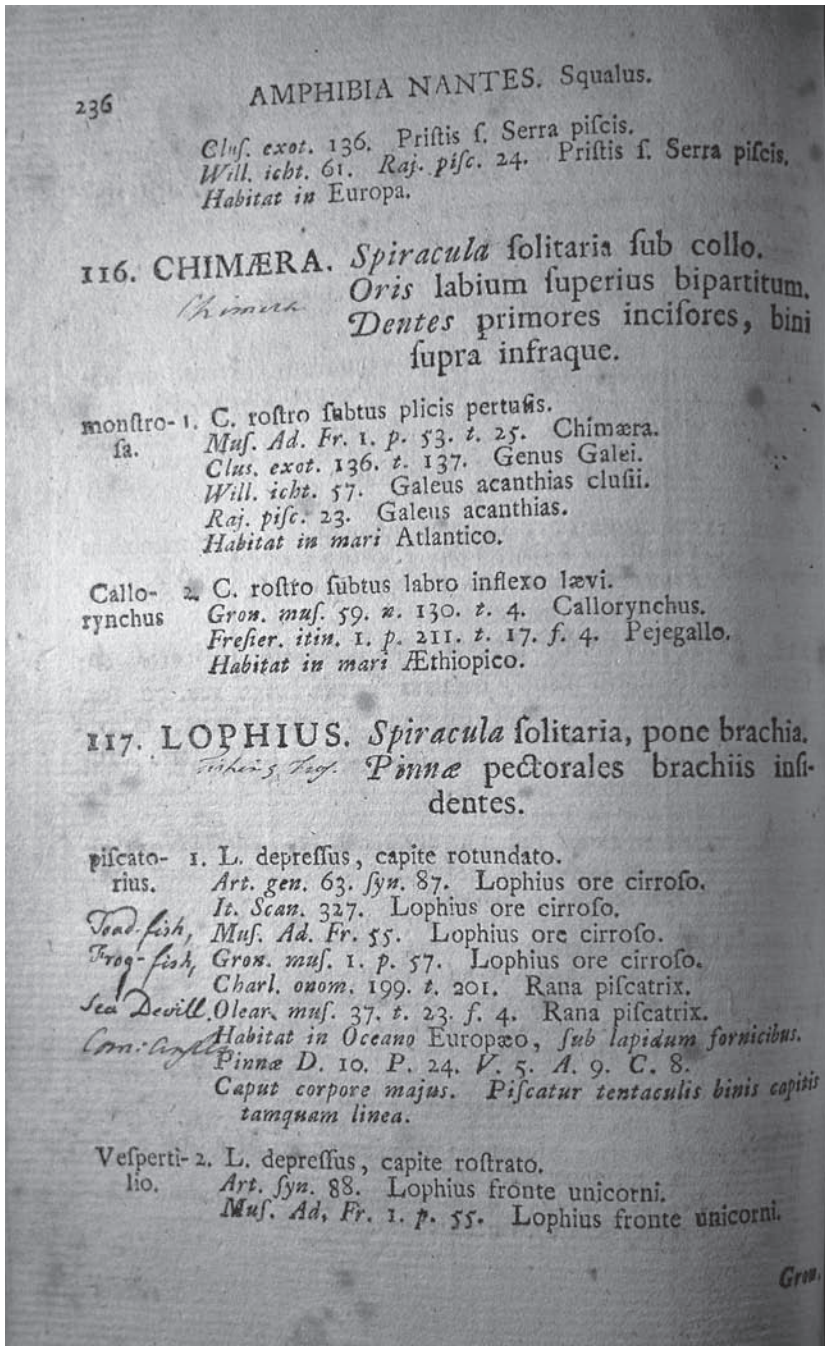 236 AMPHIBIA NANTES. Squalus.
Cluſ. exot. 136. Priſtis ſ. Serra piſcis.
Will. icht. 61. Raj. piſc. 24. Priſtis ſ. Serra piſcis.
Habitat in Europa.
116. CHIMÆRA. Spiracula ſolitaria ſub collo.
Oris labium ſuperius bipartitum.
Chimera
Dentes primores inciſores, bini
ſupra infraque.
monſtro- 1. C. roſtro ſubtus plicis pertuſis.
ſa. Muſ. Ad. Fr. 1. p. 53. t. 25. Chimæra.
Clus. exot. 136. t. 137. Genus Galei.
Will. icht. 57. Galeus acanthias cluſii.
Raj. piſc. 23. Galeus acanthias.
Habitat in mari Atlantico.
Callo- 2. C. roſtro ſubtus labro inflexo lævi.
rynchus Gron. muſ. 59. n. 130. t. 4. Callorynchus.
Freſier. itin. 1. p. 211. t. 17. f. 4. Pejegallo.
Habitat in mari Æthiopico.
117. LOPHIUS. Spiracula ſolitaria, pone brachia.
Fishing Frog. Pinnæ pectorales brachiis inſi-
dentes.
piſcato- 1. L. depreſſus, capite rotundato.
rius. Art. gen. 63. ſyn. 87. Lophius ore cirroſo.
It. Scan. 327. Lophius ore cirroſo.
Toad-fish, Muſ. Ad. Fr. 55. Lophius ore cirroſo.
Frog-fish, Gron. muſ. 1. p. 57. Lophius ore cirroſo.
Charl. onom. 199. t. 201. Rana piſcatrix.
Sea Devill. Olear. muſ. 37. t. 23. f. 4. Rana piſcatrix.
Habitat in Oceano Europæo, ſub lapidum fornicibus.
Pinnæ D. 10. P. 24. V. 5. A. 9. C. 8.
Caput corpore majus. Piſcatur tentaculis binis capitis
tamquam linea.
Veſperti- 2. L. depreſſus, capite roſtrato.
lio. Art. ſyn. 88. Lophius fronte unicorni.
Muſ. Ad. Fr. 1. p. 55. Lophius fronte unicorni.
Gron.